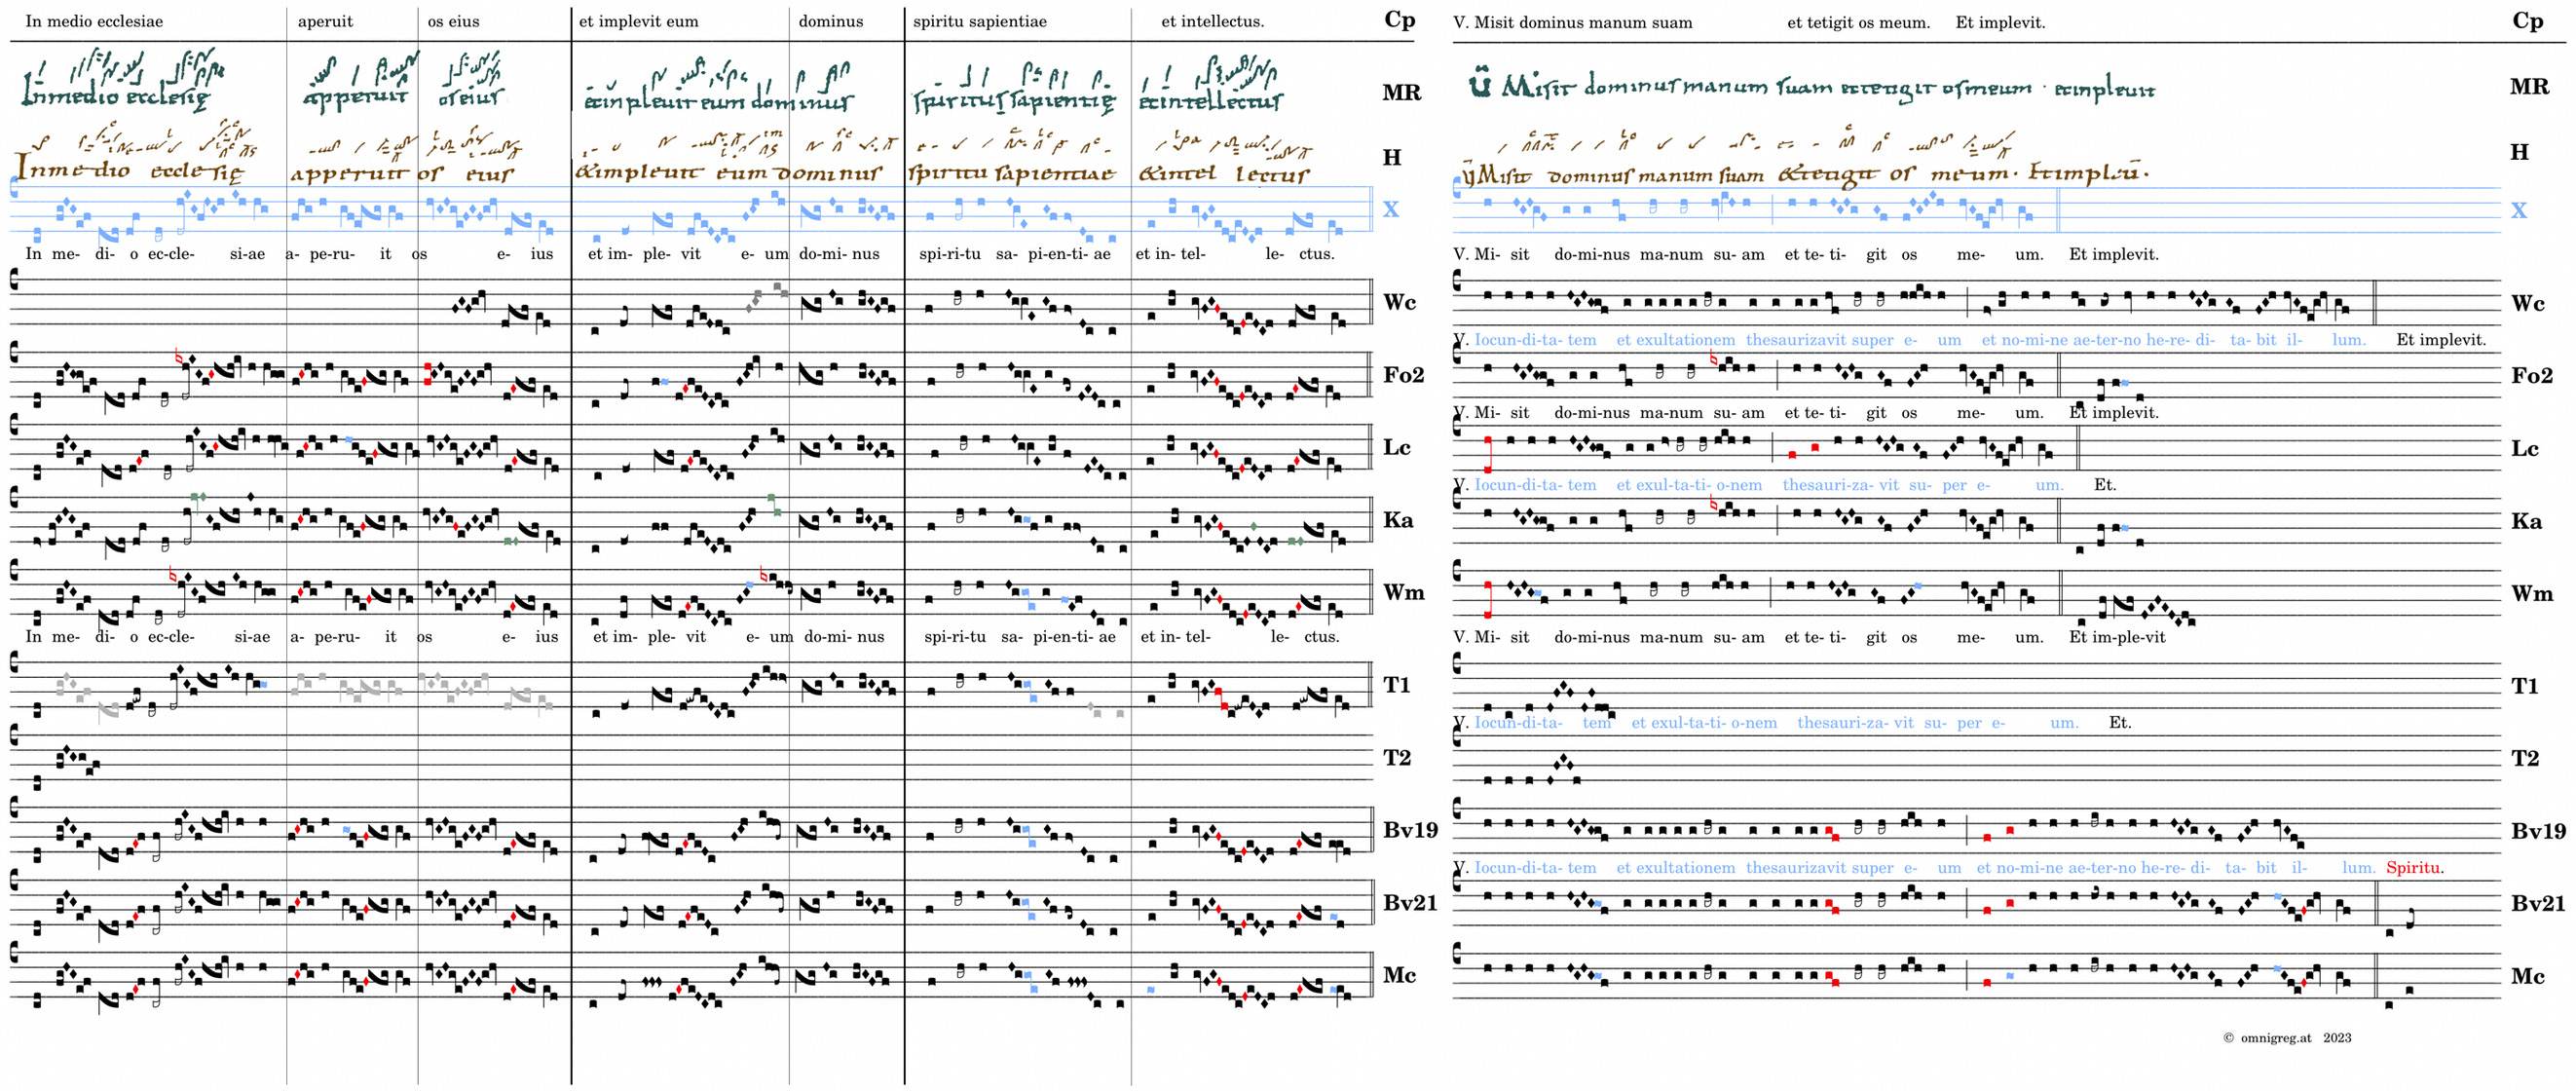 In medio ecclesiae aperuit os eius et implevit eum dominus spiritu sapientiae et intellectus. Cp
V. Misit dominus manum suam et tetigit os meum. Et implevit. Cp
Inmedio ecclesię apperuit oseius etinpleuit eum dominus spiritus sapientię etintellectus MR
Misit dominus manum suam ettetigit osmeum · etinpleuit MR
Inmedio ecclesię apperuit os eius &impleuit eum dominus spiritu sapientiae &intellectus H
Misit dominus manum suam &tetigit os meum · Etimpleū · H
X
X
In me- di- o ec-cle- si-ae a- pe-ru- it os e- ius et im- ple- vit e- um do-mi- nus spi-ri-tu sa- pi-en-ti- ae et in- tel- le- ctus.
V. Mi- sit do-mi-nus ma-num su- am et te- ti- git os me- um. Et implevit.
Wc
Wc
V. Iocun-di-ta- tem et exultationem thesaurizavit super e- um et no-mi-ne ae-ter-no he-re- di- ta- bit il- lum. Et implevit.
Fo2
Fo2
V. Mi- sit do-mi-nus ma-num su- am et te- ti- git os me- um. Et implevit.
Lc
Lc
V. Iocun-di-ta- tem et exul-ta-ti- o-nem thesauri-za- vit su- per e- um. Et.
Ka
Ka
Wm
Wm
In me- di- o ec-cle- si-ae a- pe-ru- it os e- ius et im- ple- vit e- um do-mi- nus spi-ri-tu sa- pi-en-ti- ae et in- tel- le- ctus.
V. Mi- sit do-mi-nus ma-num su- am et te- ti- git os me- um. Et im-ple-vit
T1
T1
V. Iocun-di-ta- tem et exul-ta-ti- o-nem thesauri-za- vit su- per e- um. Et.
T2
T2
Bv19
Bv19
V. Iocun-di-ta- tem et exultationem thesaurizavit super e- um et no-mi-ne ae-ter-no he-re- di- ta- bit il- lum. Spiritu.
Bv21
Bv21
Mc
Mc
© omnigreg.at 2023